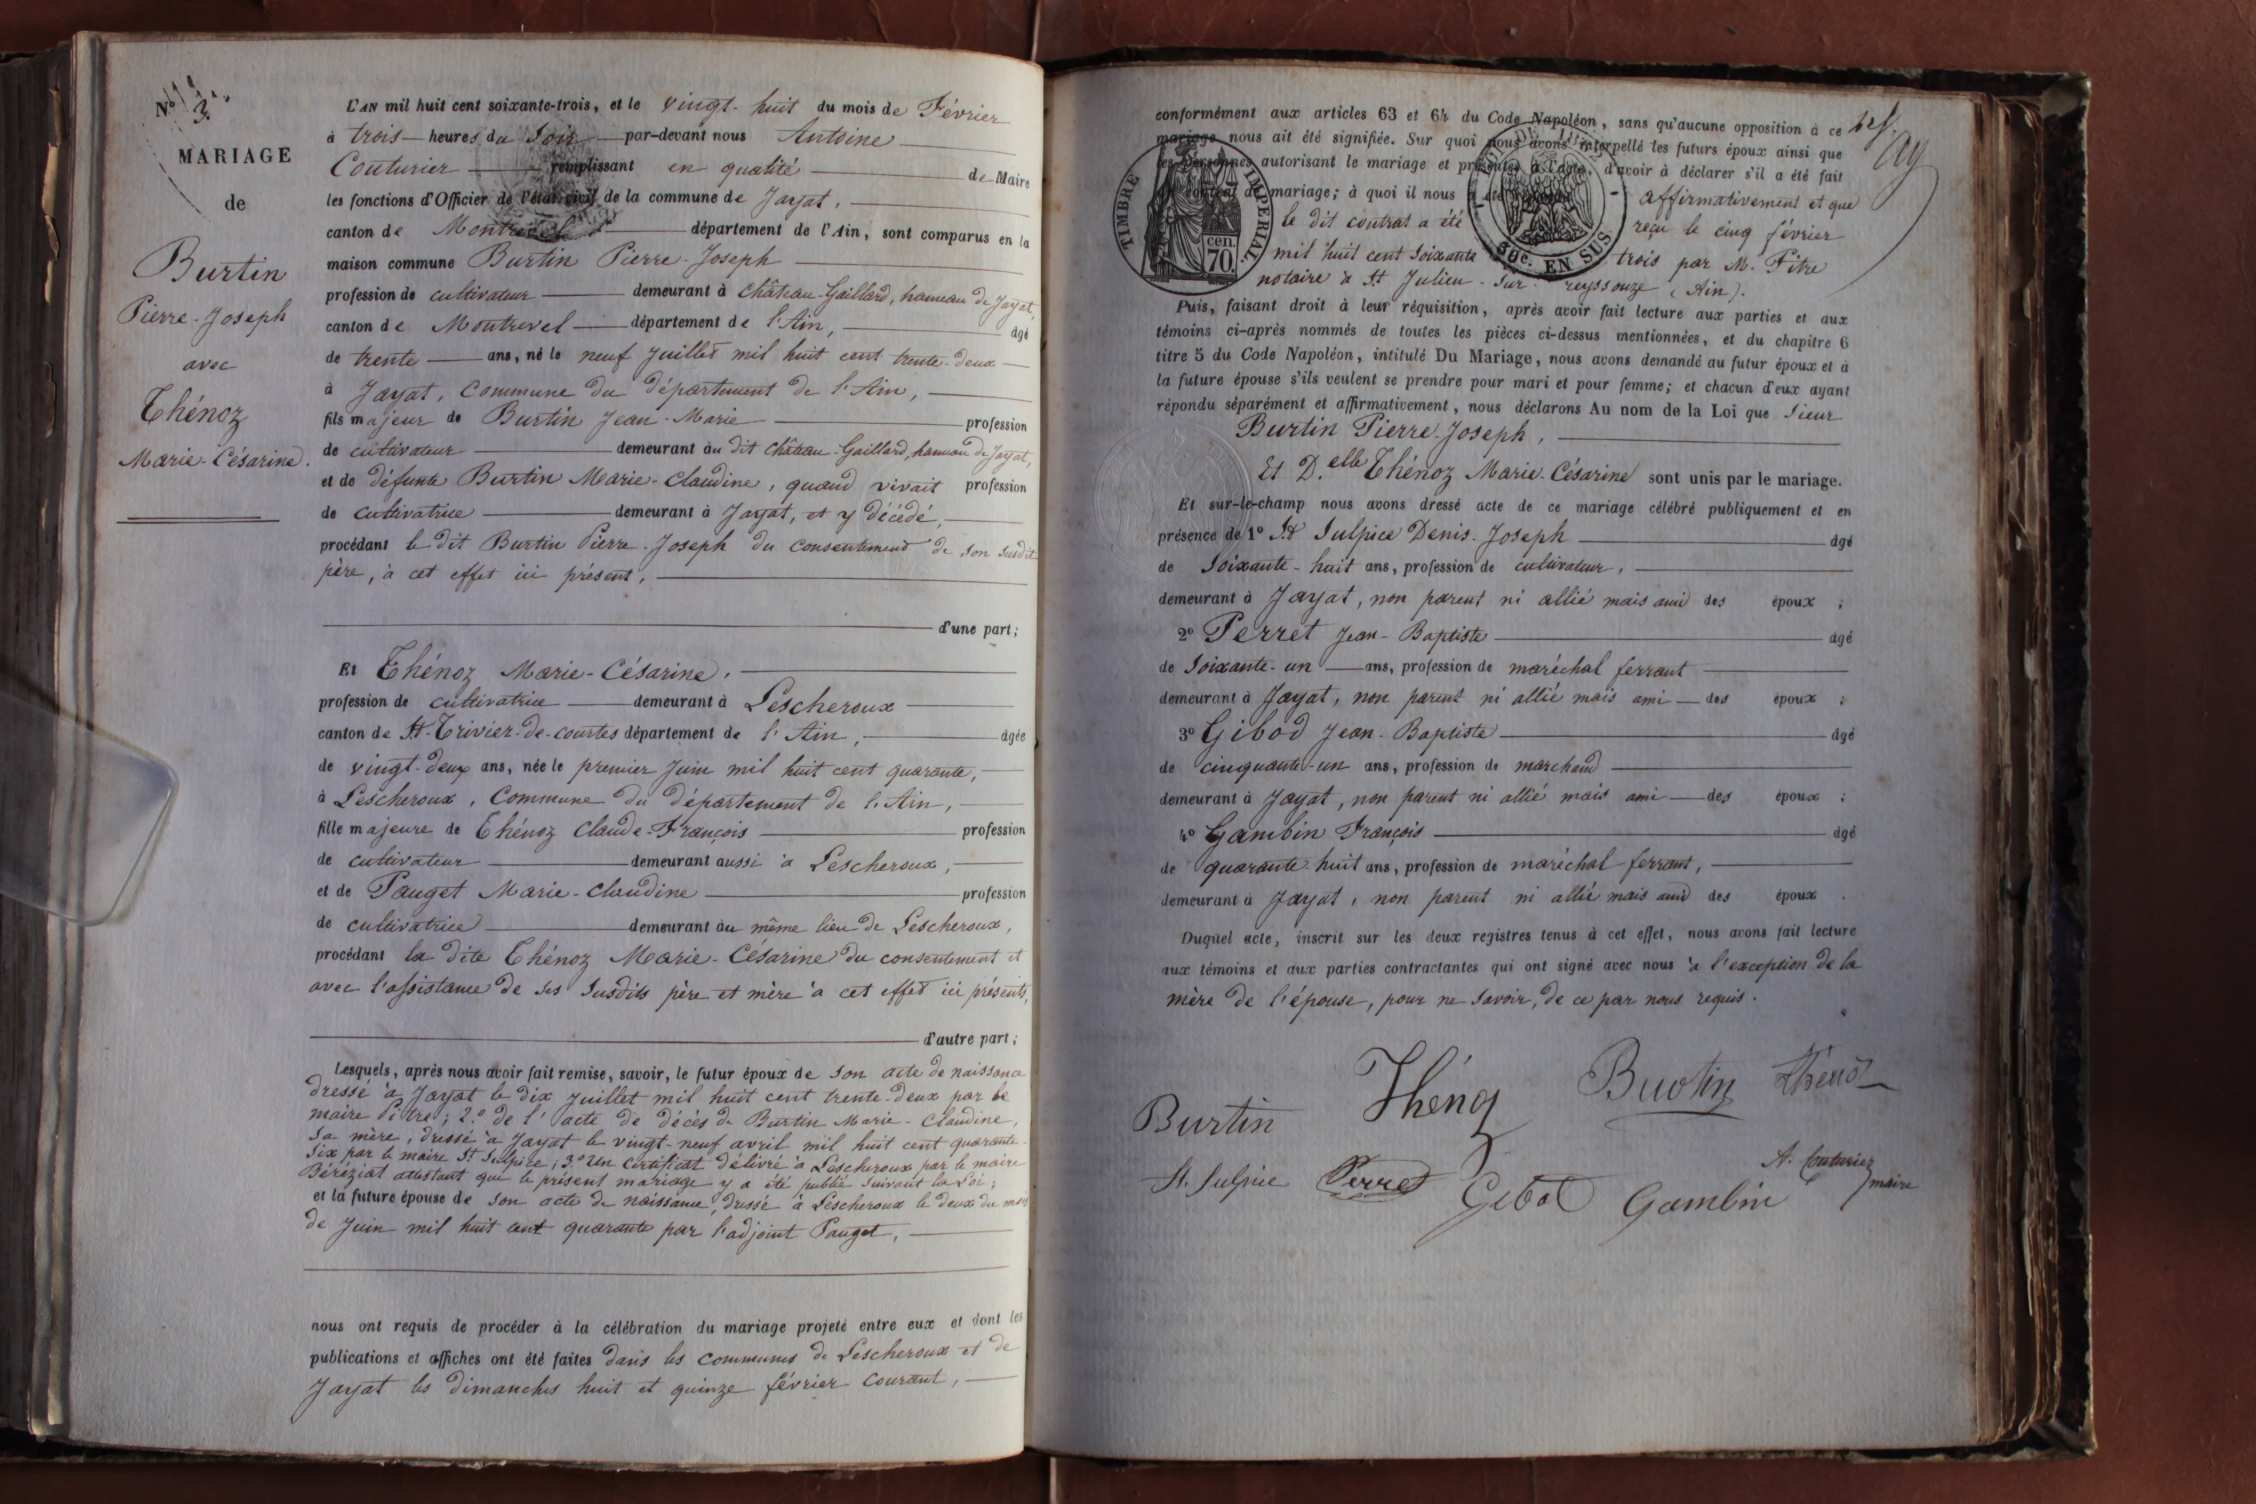 N° 3.
MARIAGE
de
Burtin
Pierre-Joseph
avec
Thénoz
Marie-Césarine.
L'AN mil huit cent soixante-trois, et le vingt-huit du mois de Février
à trois heures du Soir par-devant nous Antoine
Couturier remplissant en qualité de Maire
les fonctions d'Officier de l'état civil de la commune de Jayat,
canton de Montrevel département de l'Ain, sont comparus en la
maison commune Burtin Pierre-Joseph
profession de cultivateur demeurant à Château-Gaillard, hameau de Jayat,
canton de Montrevel département de l'Ain, âgé
de trente ans, né le neuf Juillet mil huit cent trente-deux
à Jayat, Commune du département de l'Ain,
fils majeur de Burtin Jean-Marie profession
de cultivateur demeurant au dit Château-Gaillard, hameau de Jayat,
et de défunte Burtin Marie-Claudine, quand vivait profession
de cultivatrice demeurant à Jayat, et y décédé,
procédant le dit Burtin Pierre-Joseph du consentement de son susdit
père, à cet effet ici présent,
d'une part;
Et Thénoz Marie-Césarine,
profession de cultivatrice demeurant à Lescheroux
canton de St-Trivier-de-courtes département de l'Ain, âgée
de vingt-deux ans, née le premier Juin mil huit cent quarante,
à Lescheroux, Commune du département de l'Ain,
fille majeure de Thénoz Claude-François profession
de cultivateur demeurant aussi à Lescheroux,
et de Pauget Marie-Claudine profession
de cultivatrice demeurant au même lieu de Lescheroux,
procédant la dite Thénoz Marie-Césarine du consentement et
avec l'assistance de ses susdits père et mère à cet effet ici présents,
d'autre part;
Lesquels, après nous avoir fait remise, savoir, le futur époux de son acte de naissance
dressé à Jayat le dix Juillet mil huit cent trente-deux par le
maire Pitre; 2° de l'acte de décès de Burtin Marie-Claudine,
sa mère, dressé à Jayat le vingt-neuf avril mil huit cent quarante-
six par le maire St Sulpice; 3° un certificat délivré à Lescheroux par le maire
Béréziat attestant que le présent mariage y a été publié suivant la Loi;
et la future épouse de son acte de naissance, dressé à Lescheroux le deux du mois
de Juin mil huit cent quarante par l'adjoint Pauget,
nous ont requis de procéder à la célébration du mariage projeté entre eux et dont les
publications et affiches ont été faites dans les communes de Lescheroux et de
Jayat les dimanches huit et quinze février courant,
conformément aux articles 63 et 64 du Code Napoléon, sans qu'aucune opposition à ce
mariage nous ait été signifiée. Sur quoi nous avons interpellé les futurs époux ainsi que
les personnes autorisant le mariage et présentes à l'acte, d'avoir à déclarer s'il a été fait
un contrat de mariage; à quoi il nous a été répondu affirmativement et que
le dit contrat a été reçu le cinq février
mil huit cent soixante trois par M. Pitre
notaire à St Julien-sur-reyssouze (Ain).
TIMBRE IMPERIAL.
cen. 70.
50c. EN SUS
Puis, faisant droit à leur réquisition, après avoir fait lecture aux parties et aux
témoins ci-après nommés de toutes les pièces ci-dessus mentionnées, et du chapitre 6
titre 5 du Code Napoléon, intitulé Du Mariage, nous avons demandé au futur époux et à
la future épouse s'ils veulent se prendre pour mari et pour femme; et chacun d'eux ayant
répondu séparément et affirmativement, nous déclarons Au nom de la Loi que Sieur
Burtin Pierre-Joseph,
Et D.elle Thénoz Marie-Césarine sont unis par le mariage.
Et sur-le-champ nous avons dressé acte de ce mariage célébré publiquement et en
présence de 1° St Sulpice Denis-Joseph âgé
de Soixante-huit ans, profession de cultivateur,
demeurant à Jayat, non parent ni allié mais ami des époux;
2° Perret Jean-Baptiste âgé
de Soixante-un ans, profession de maréchal ferrant
demeurant à Jayat, non parent ni allié mais ami des époux;
3° Gibod Jean-Baptiste âgé
de cinquante-un ans, profession de marchand
demeurant à Jayat, non parent ni allié mais ami des époux;
4° Gambin François âgé
de quarante-huit ans, profession de maréchal-ferrant,
demeurant à Jayat, non parent ni allié mais ami des époux.
Duquel acte, inscrit sur les deux registres tenus à cet effet, nous avons fait lecture
aux témoins et aux parties contractantes qui ont signé avec nous à l'exception de la
mère de l'épouse, pour ne savoir, de ce par nous requis.
Burtin Thénoz Burtin Thénoz
St. Sulpice Perret Gibod Gambin A. Couturier
maire